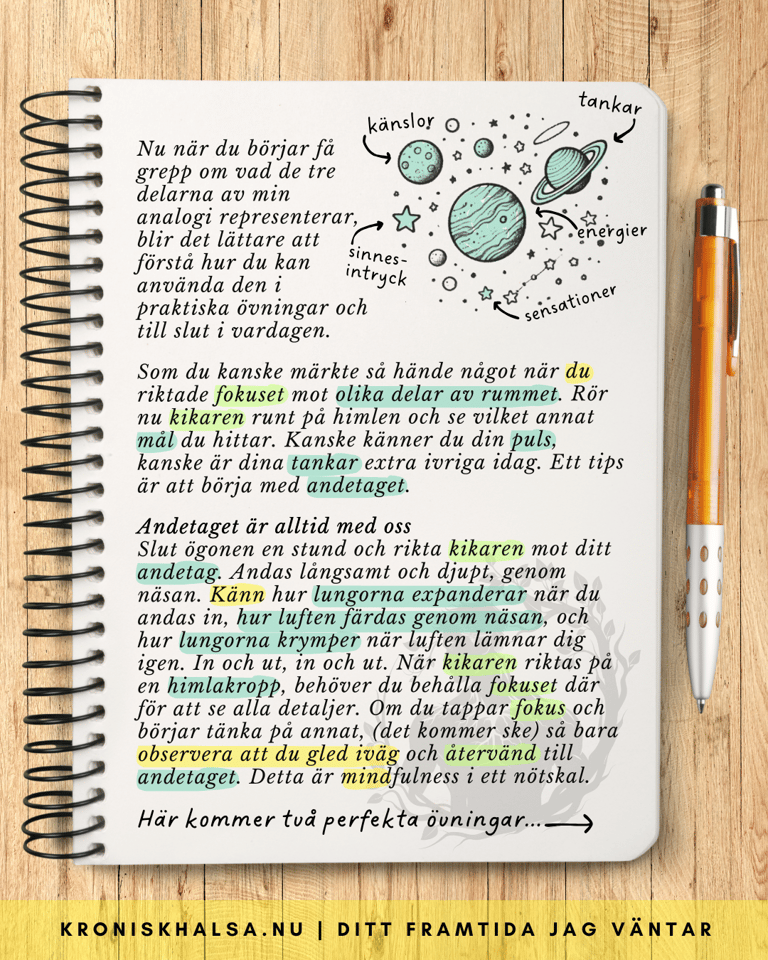 Nu när du börjar få
grepp om vad de tre
delarna av min
analogi representerar,
blir det lättare att
förstå hur du kan
använda den i
praktiska övningar och
till slut i vardagen.
känslor
tankar
energier
sinnes-
intryck
sensationer
Som du kanske märkte så hände något när du
riktade fokuset mot olika delar av rummet. Rör
nu kikaren runt på himlen och se vilket annat
mål du hittar. Kanske känner du din puls,
kanske är dina tankar extra ivriga idag. Ett tips
är att börja med andetaget.
Andetaget är alltid med oss
Slut ögonen en stund och rikta kikaren mot ditt
andetag. Andas långsamt och djupt, genom
näsan. Känn hur lungorna expanderar när du
andas in, hur luften färdas genom näsan, och
hur lungorna krymper när luften lämnar dig
igen. In och ut, in och ut. När kikaren riktas på
en himlakropp, behöver du behålla fokuset där
för att se alla detaljer. Om du tappar fokus och
börjar tänka på annat, (det kommer ske) så bara
observera att du gled iväg och återvänd till
andetaget. Detta är mindfulness i ett nötskal.
Här kommer två perfekta övningar...
KRONISKHALSA.NU | DITT FRAMTIDA JAG VÄNTAR